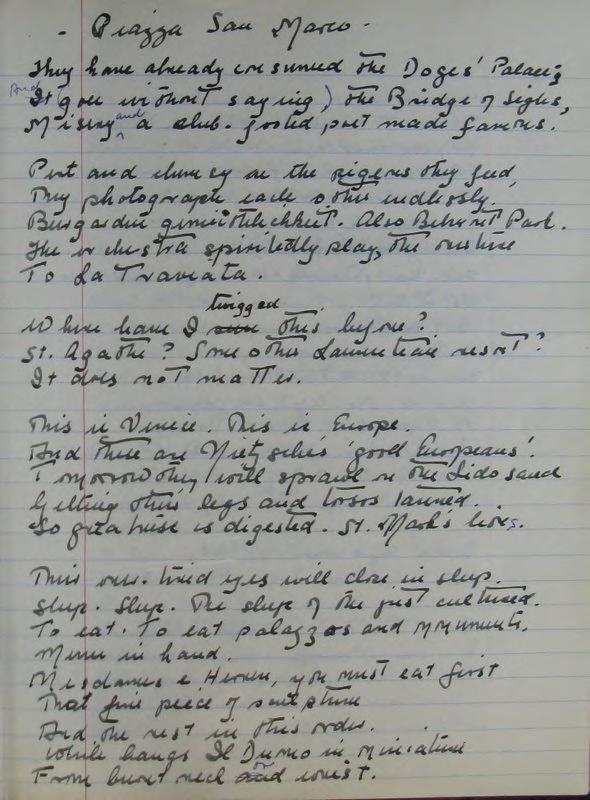 - Piazza San Marco -
They have already consumed the Doges' Palace,
And (It goes without saying) the Bridge of Sighs,
Missing and a club-footed poet made famous.
Pert and clumsy as the pigeons they feed,
They photograph each other endlessly.
gemütlichkeit. Also Belmont Park.
The orchestra spiritedly plays the overture
To La Traviata.
Where have I twigged this before?
St. Agathe? Some other Laurentian resort?
It does not matter.
This is Venice. This is Europe.
And these are Nietzsche's 'good Europeans'.
Tomorrow they will sprawl on the Lido sand
Getting their legs and torsos tanned.
So is digested. St. Mark's lions.
Their over-tired eyes will close in sleep.
Sleep. Sleep. The sleep of the just cultured.
To eat. To eat palazzos and monuments.
Menu in hand.
Mesdames e Herren, you must eat first
That fine piece of sculpture
And the rest in this order.
While hangs Il Duomo in miniature
From burnt neck or wrist.